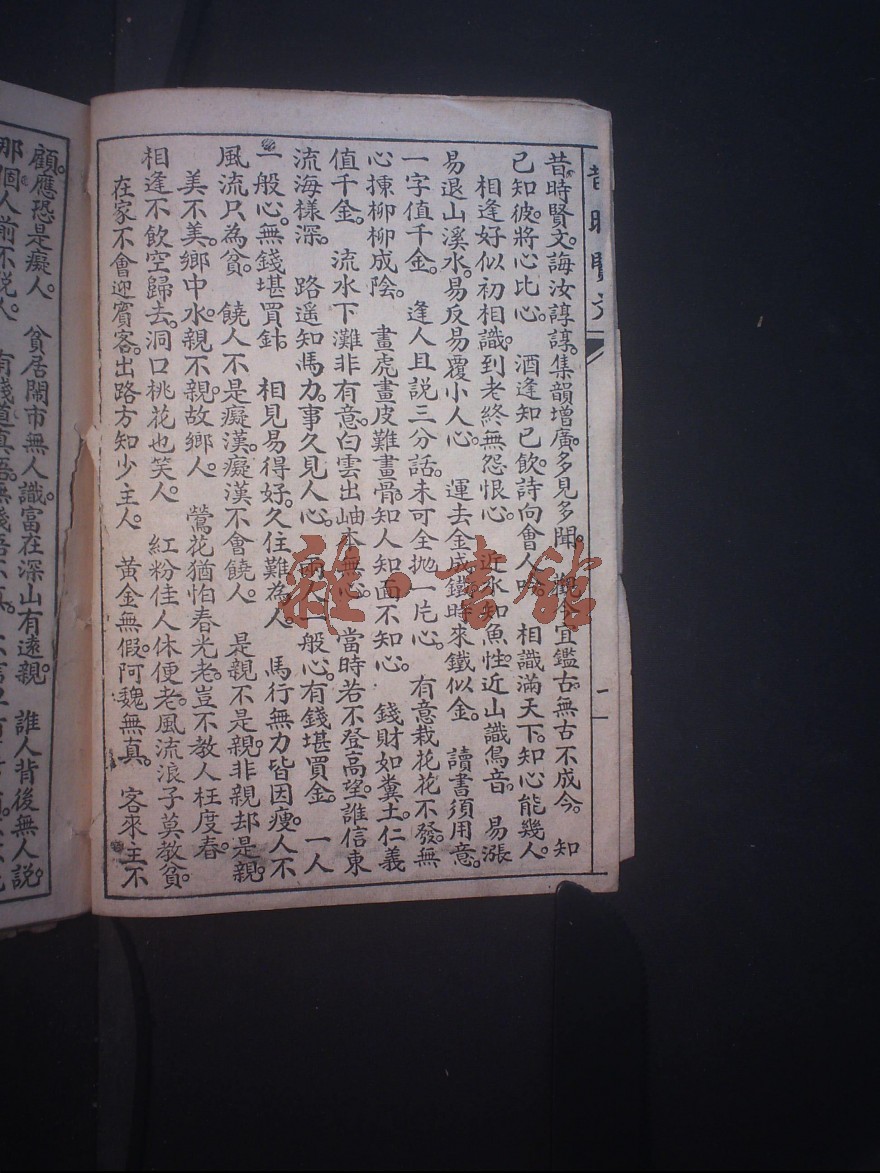 昔時賢文
一
昔時賢文。誨汝諄諄。集韻增廣。多見多聞。 觀今宜鑑古。無古不成今。 知
己知彼。將心比心。 酒逢知己飲。詩向會人吟。 相識滿天下。知心能幾人。
相逢好似初相識。到老終無怨恨心。 近水知魚性。近山識鳥音。 易漲
易退山溪水。易反易覆小人心。 運去金成鐵。時來鐵似金。 讀書須用意。
一字值千金。 逢人且説三分話。未可全抛一片心。 有意栽花花不發。無
心揀柳柳成陰。 畫虎畫皮難畫骨。知人知面不知心。 錢財如糞土。仁義
值千金。 流水下灘非有意。白雲出岫本無心。 當時若不登高望。誰信東
流海樣深。 路遥知馬力。事久見人心。 兩人一般心。有錢堪買金。 一人
一般心。無錢堪買針。 相見易得好。久住難為人。 馬行無力皆因瘦。人不
風流只為貧。 饒人不是癡漢。癡漢不會饒人。 是親不是親。非親却是親。
美不美。鄉中水。親不親。故鄉人。 鶯花猶怕春光老。豈不教人枉度春。
相逢不飲空歸去。洞口桃花也笑人。 紅粉佳人休便老。風流浪子莫教貧。
在家不會迎賓客。出路方知少主人。 黃金無假。阿魏無真。 客來主不
顧。應恐是癡人。 貧居鬧市無人識。富在深山有遠親。 誰人背後無人説。
那個人前不説人。 有錢道真語。無錢語不真。
雜·書館